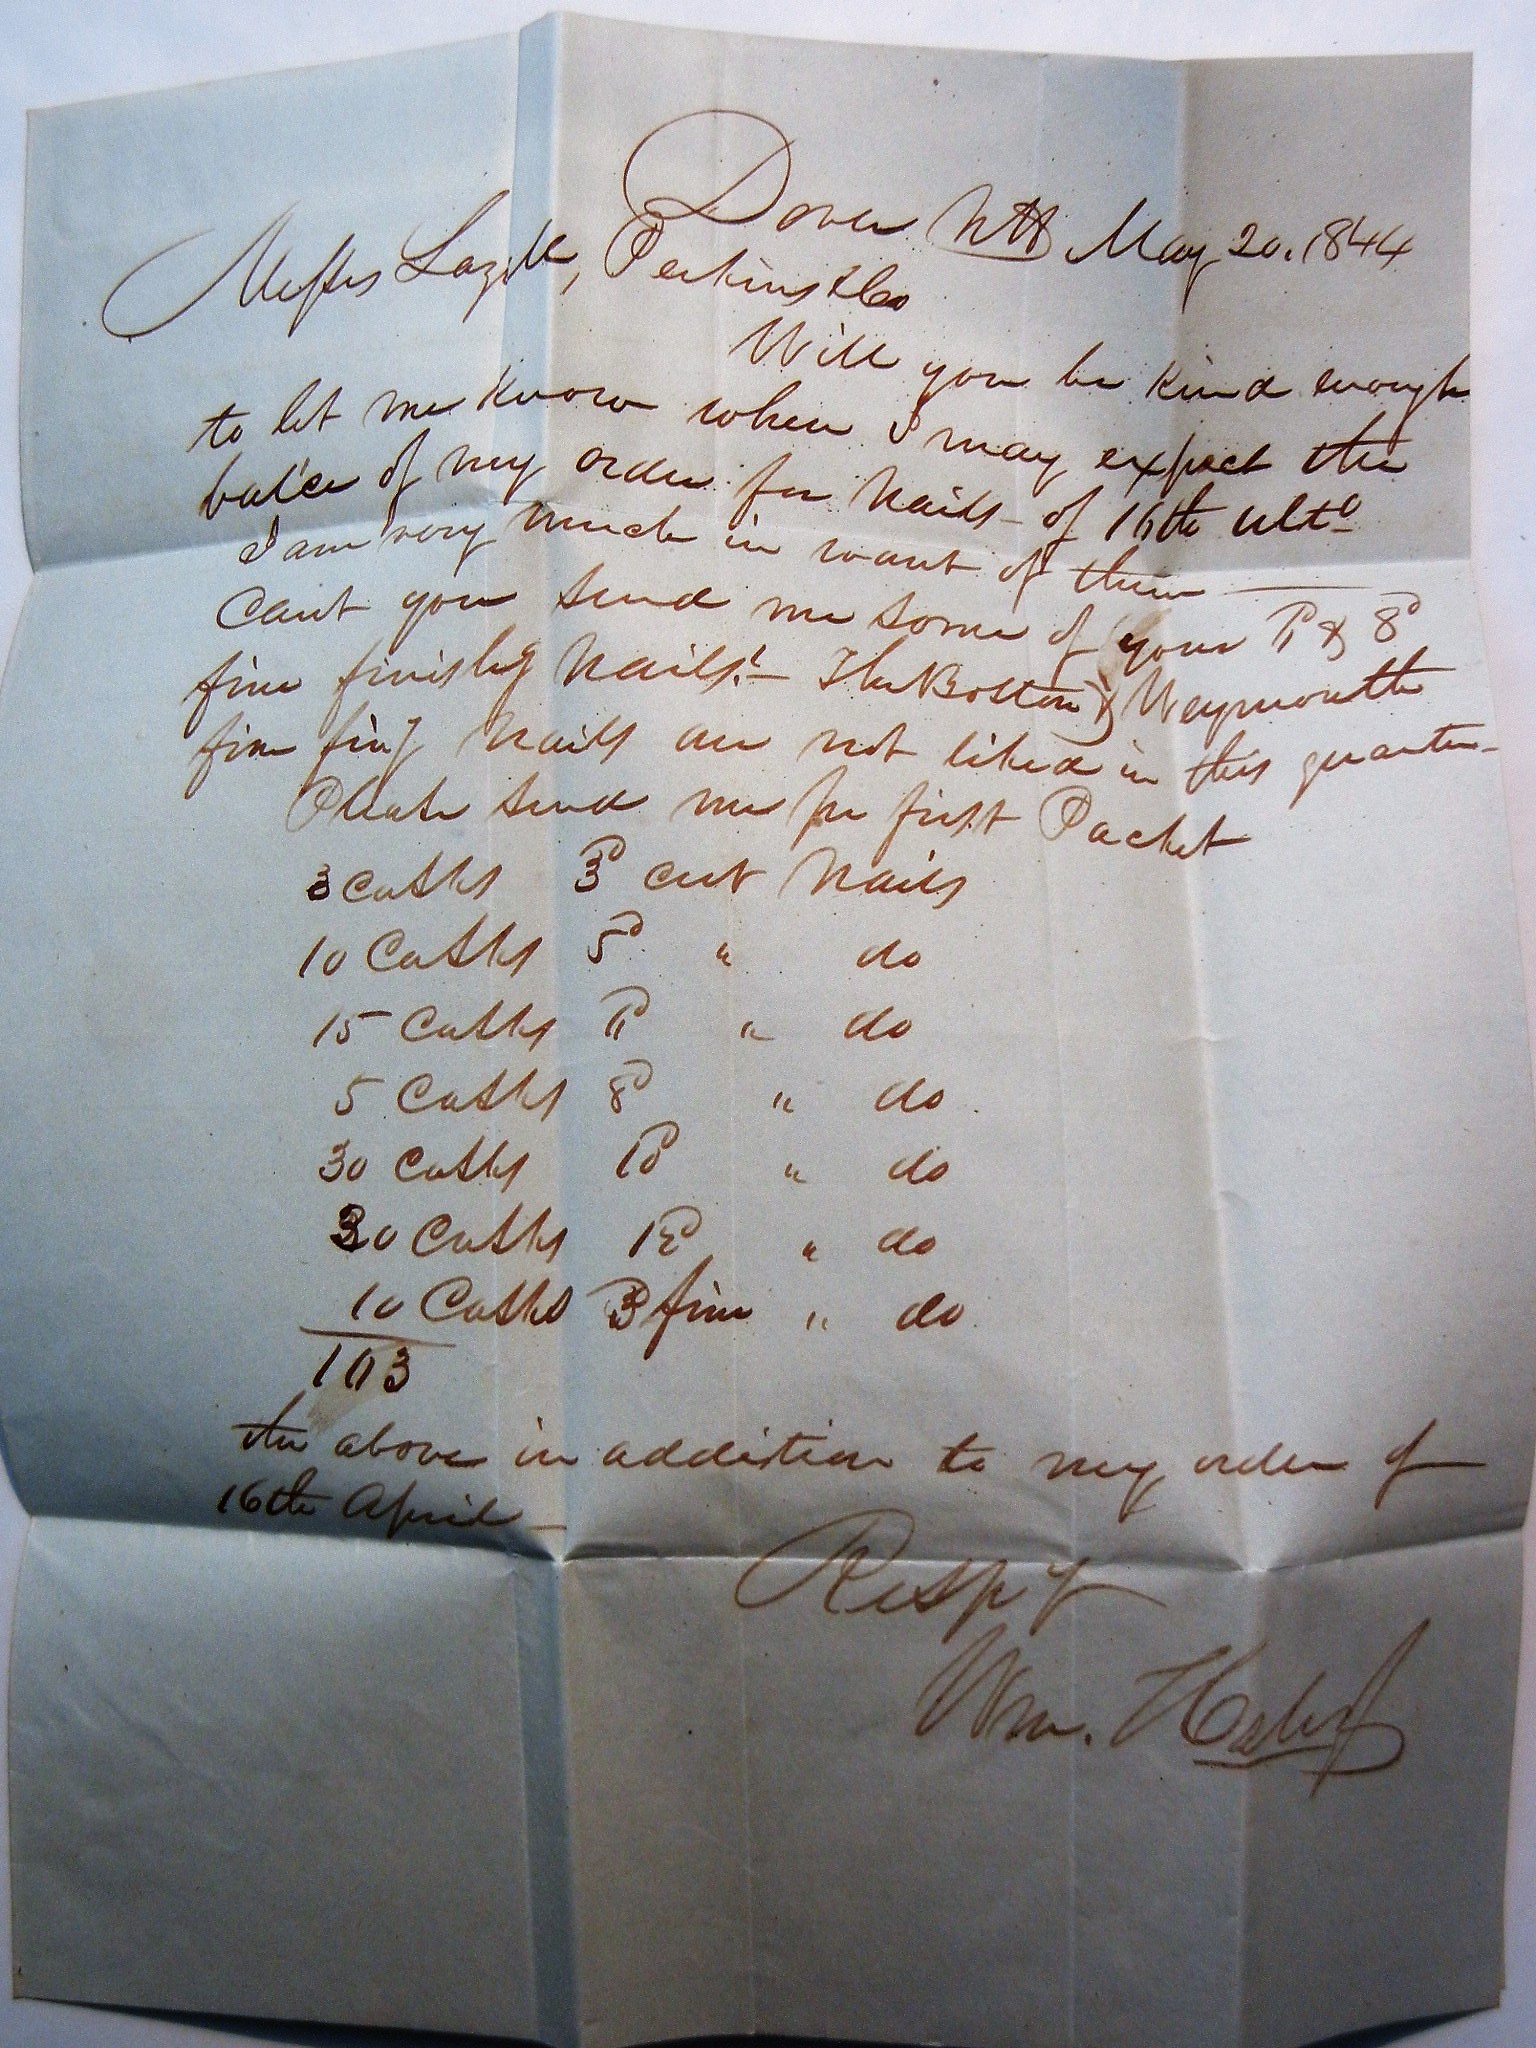 Dover NH May 20. 1844
Messrs Lazell, Perkins & Co
Will you be kind enough
to let me know when I may expect the
bal'ce of my order for Nails - of 16th ulto
I am very much in want of them
Cant you send me some of your 6d & 8d
fine finishg Nails? - The Boston & Weymouth
fine fing Nails are not liked in this quarter -
Please send me pr first Packet
3 Casks 3d cut Nails
10 Casks 5d " do
15 Casks 6d " do
5 Casks 8d " do
30 Casks 10d " do
30 Casks 12d " do
10 Casks 3d fine " do
103
the above in addition to my order of
16th April -
Respy
Wm.